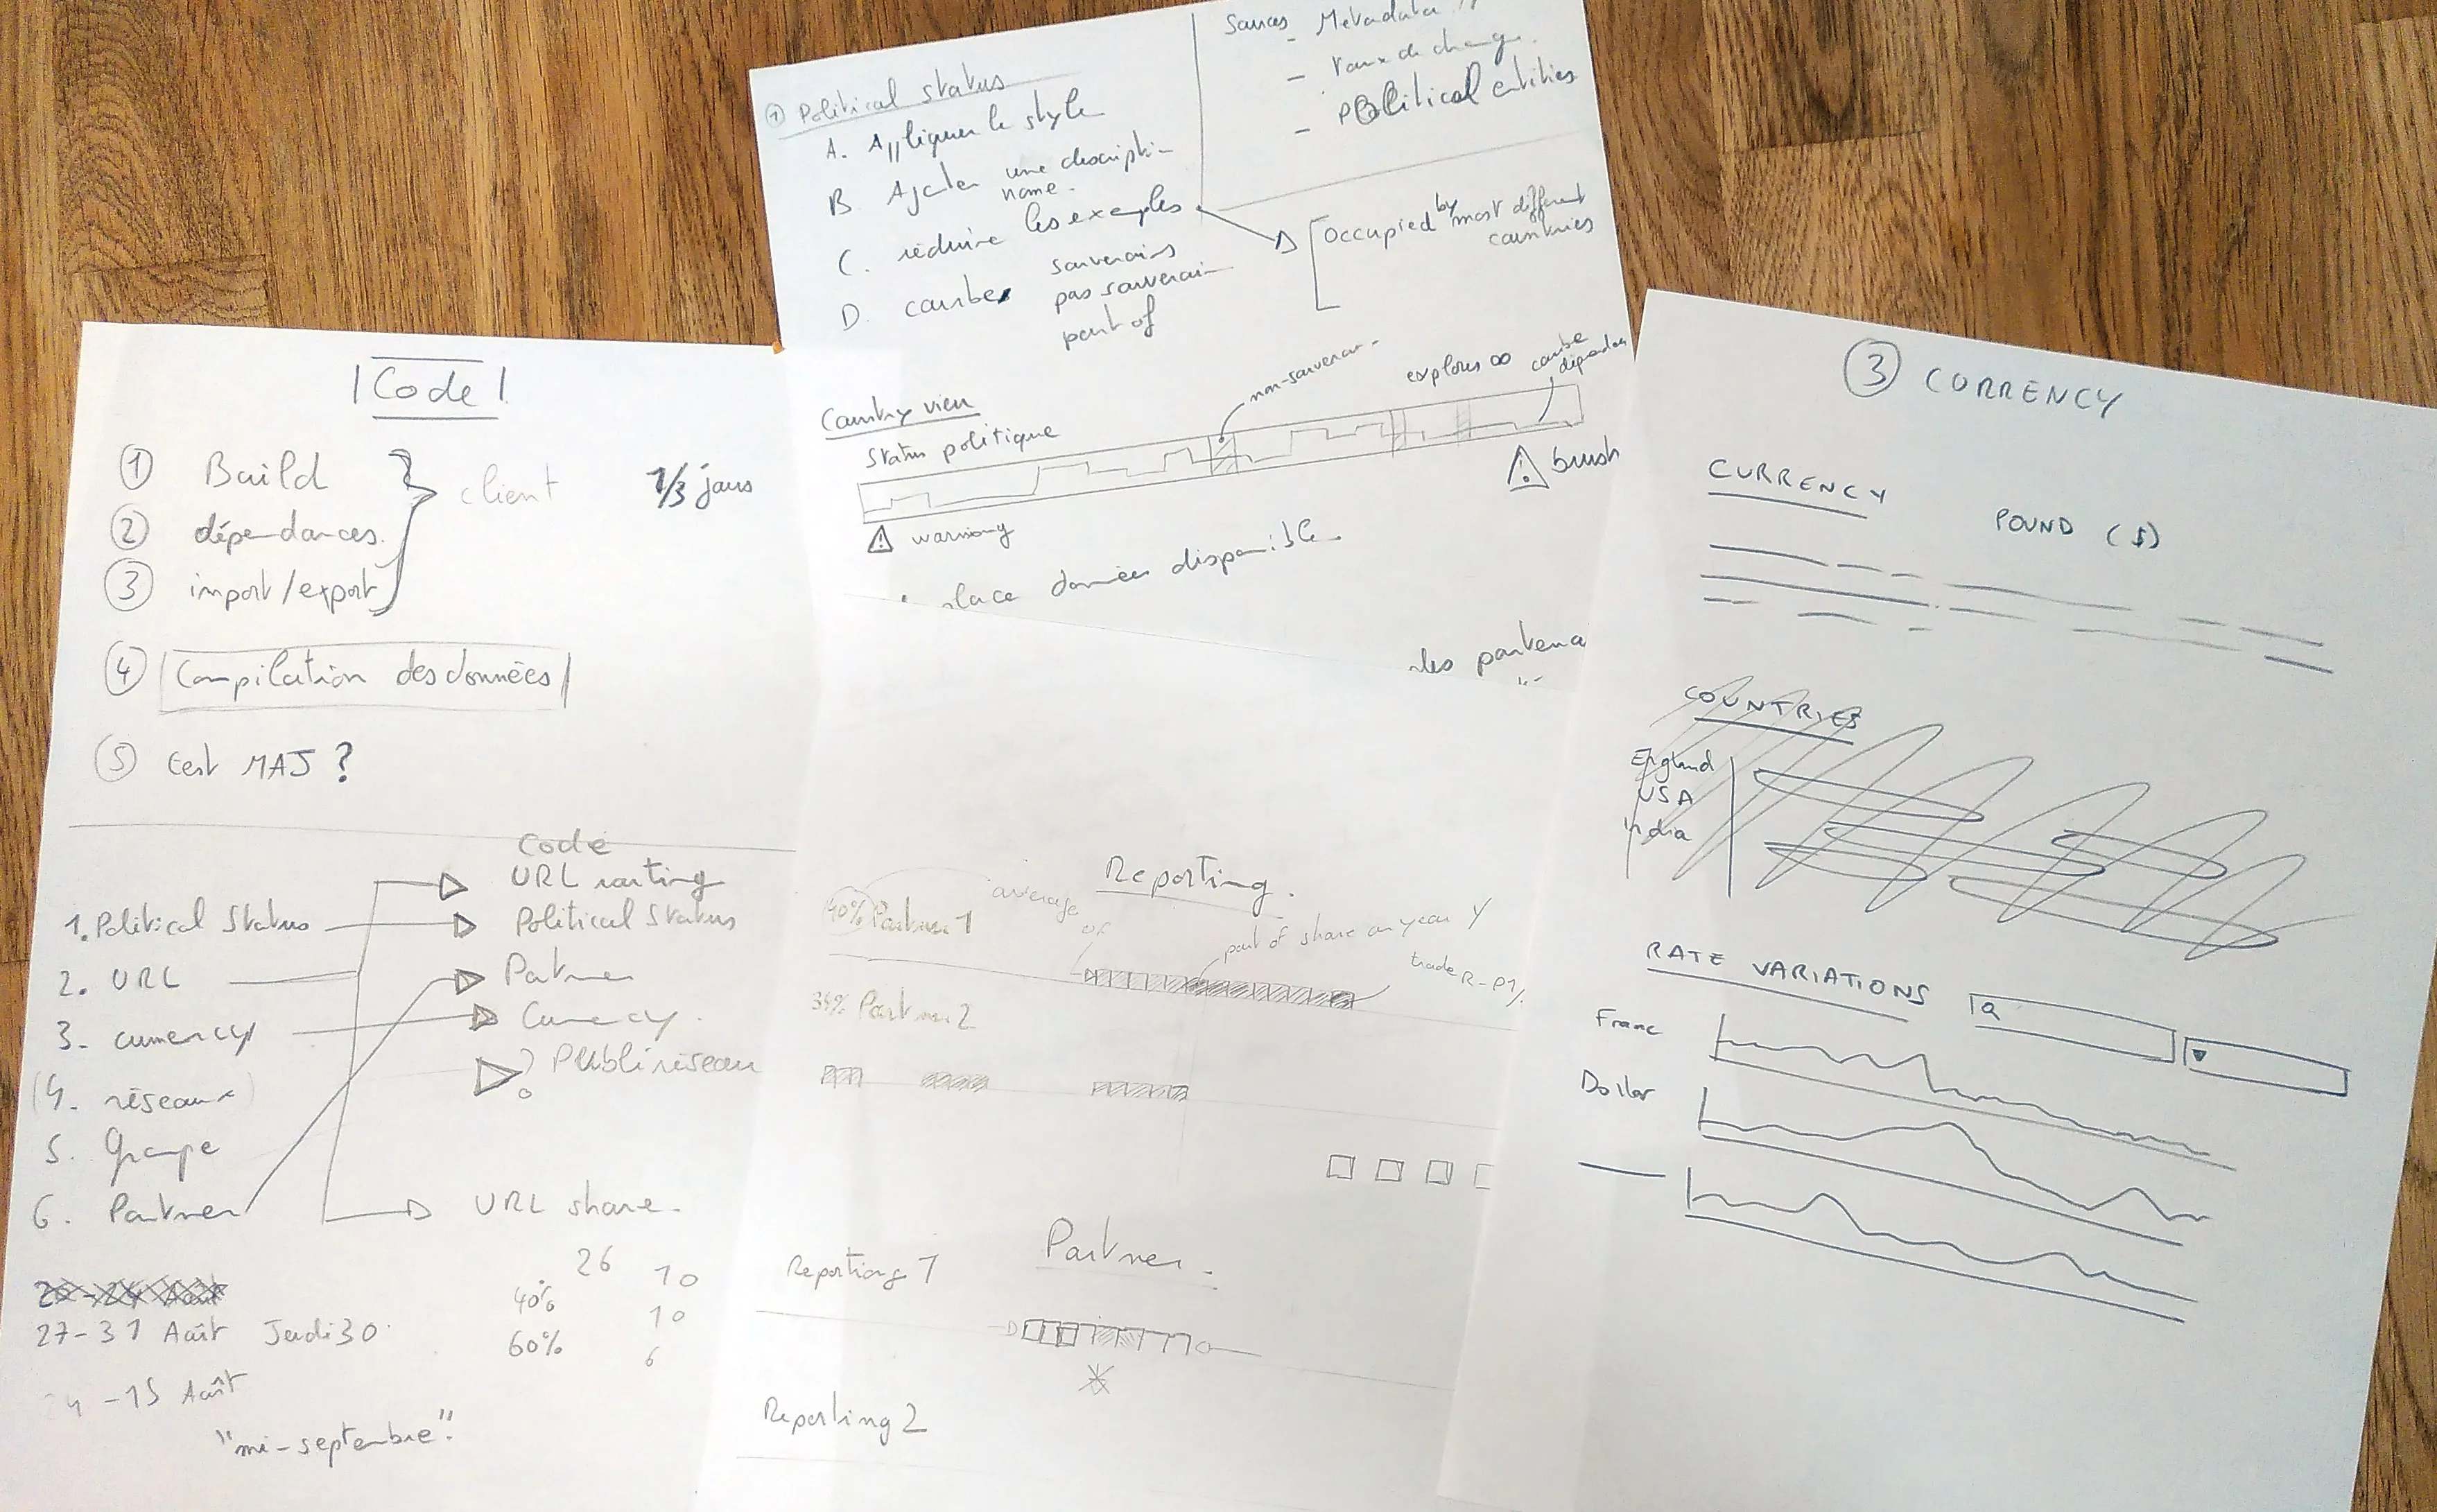 Code
① Build
② dépendances
③ import/export
client
1/3 jours
④ Compilation des données
⑤ c'est MAJ ?
Code
URL routing
1. Political Status
Political Status
2. URL
Partner
3. currency
Currency
(4. réseaux)
? Publi réseau
5. Groupe
6. Partner
URL share
26
27-31 Août Jeudi 30
40% 10
60% 10
6
-15 Août
"mi-septembre"
① Political status
A. Appliquer le style
B. Ajouter une description
name
C. réduire les exemples
D. courbes
souverains
pas souverain
part of
Sources
- Metadata
- Taux de change
- Political entities
Occupied by most different
countries
Country view
Status politique
non-souverain
explorer ∞
courbe
⚠ warning
⚠ brush
place données disponible
les partena
Reporting
40% Partner 1
average
of
part of share on year Y
trade R-P1/
34% Partner 2
Partner
Reporting 1
Reporting 2
③ CURRENCY
CURRENCY
POUND ($)
COUNTRIES
England
USA
India
RATE VARIATIONS
Franc
Dollar